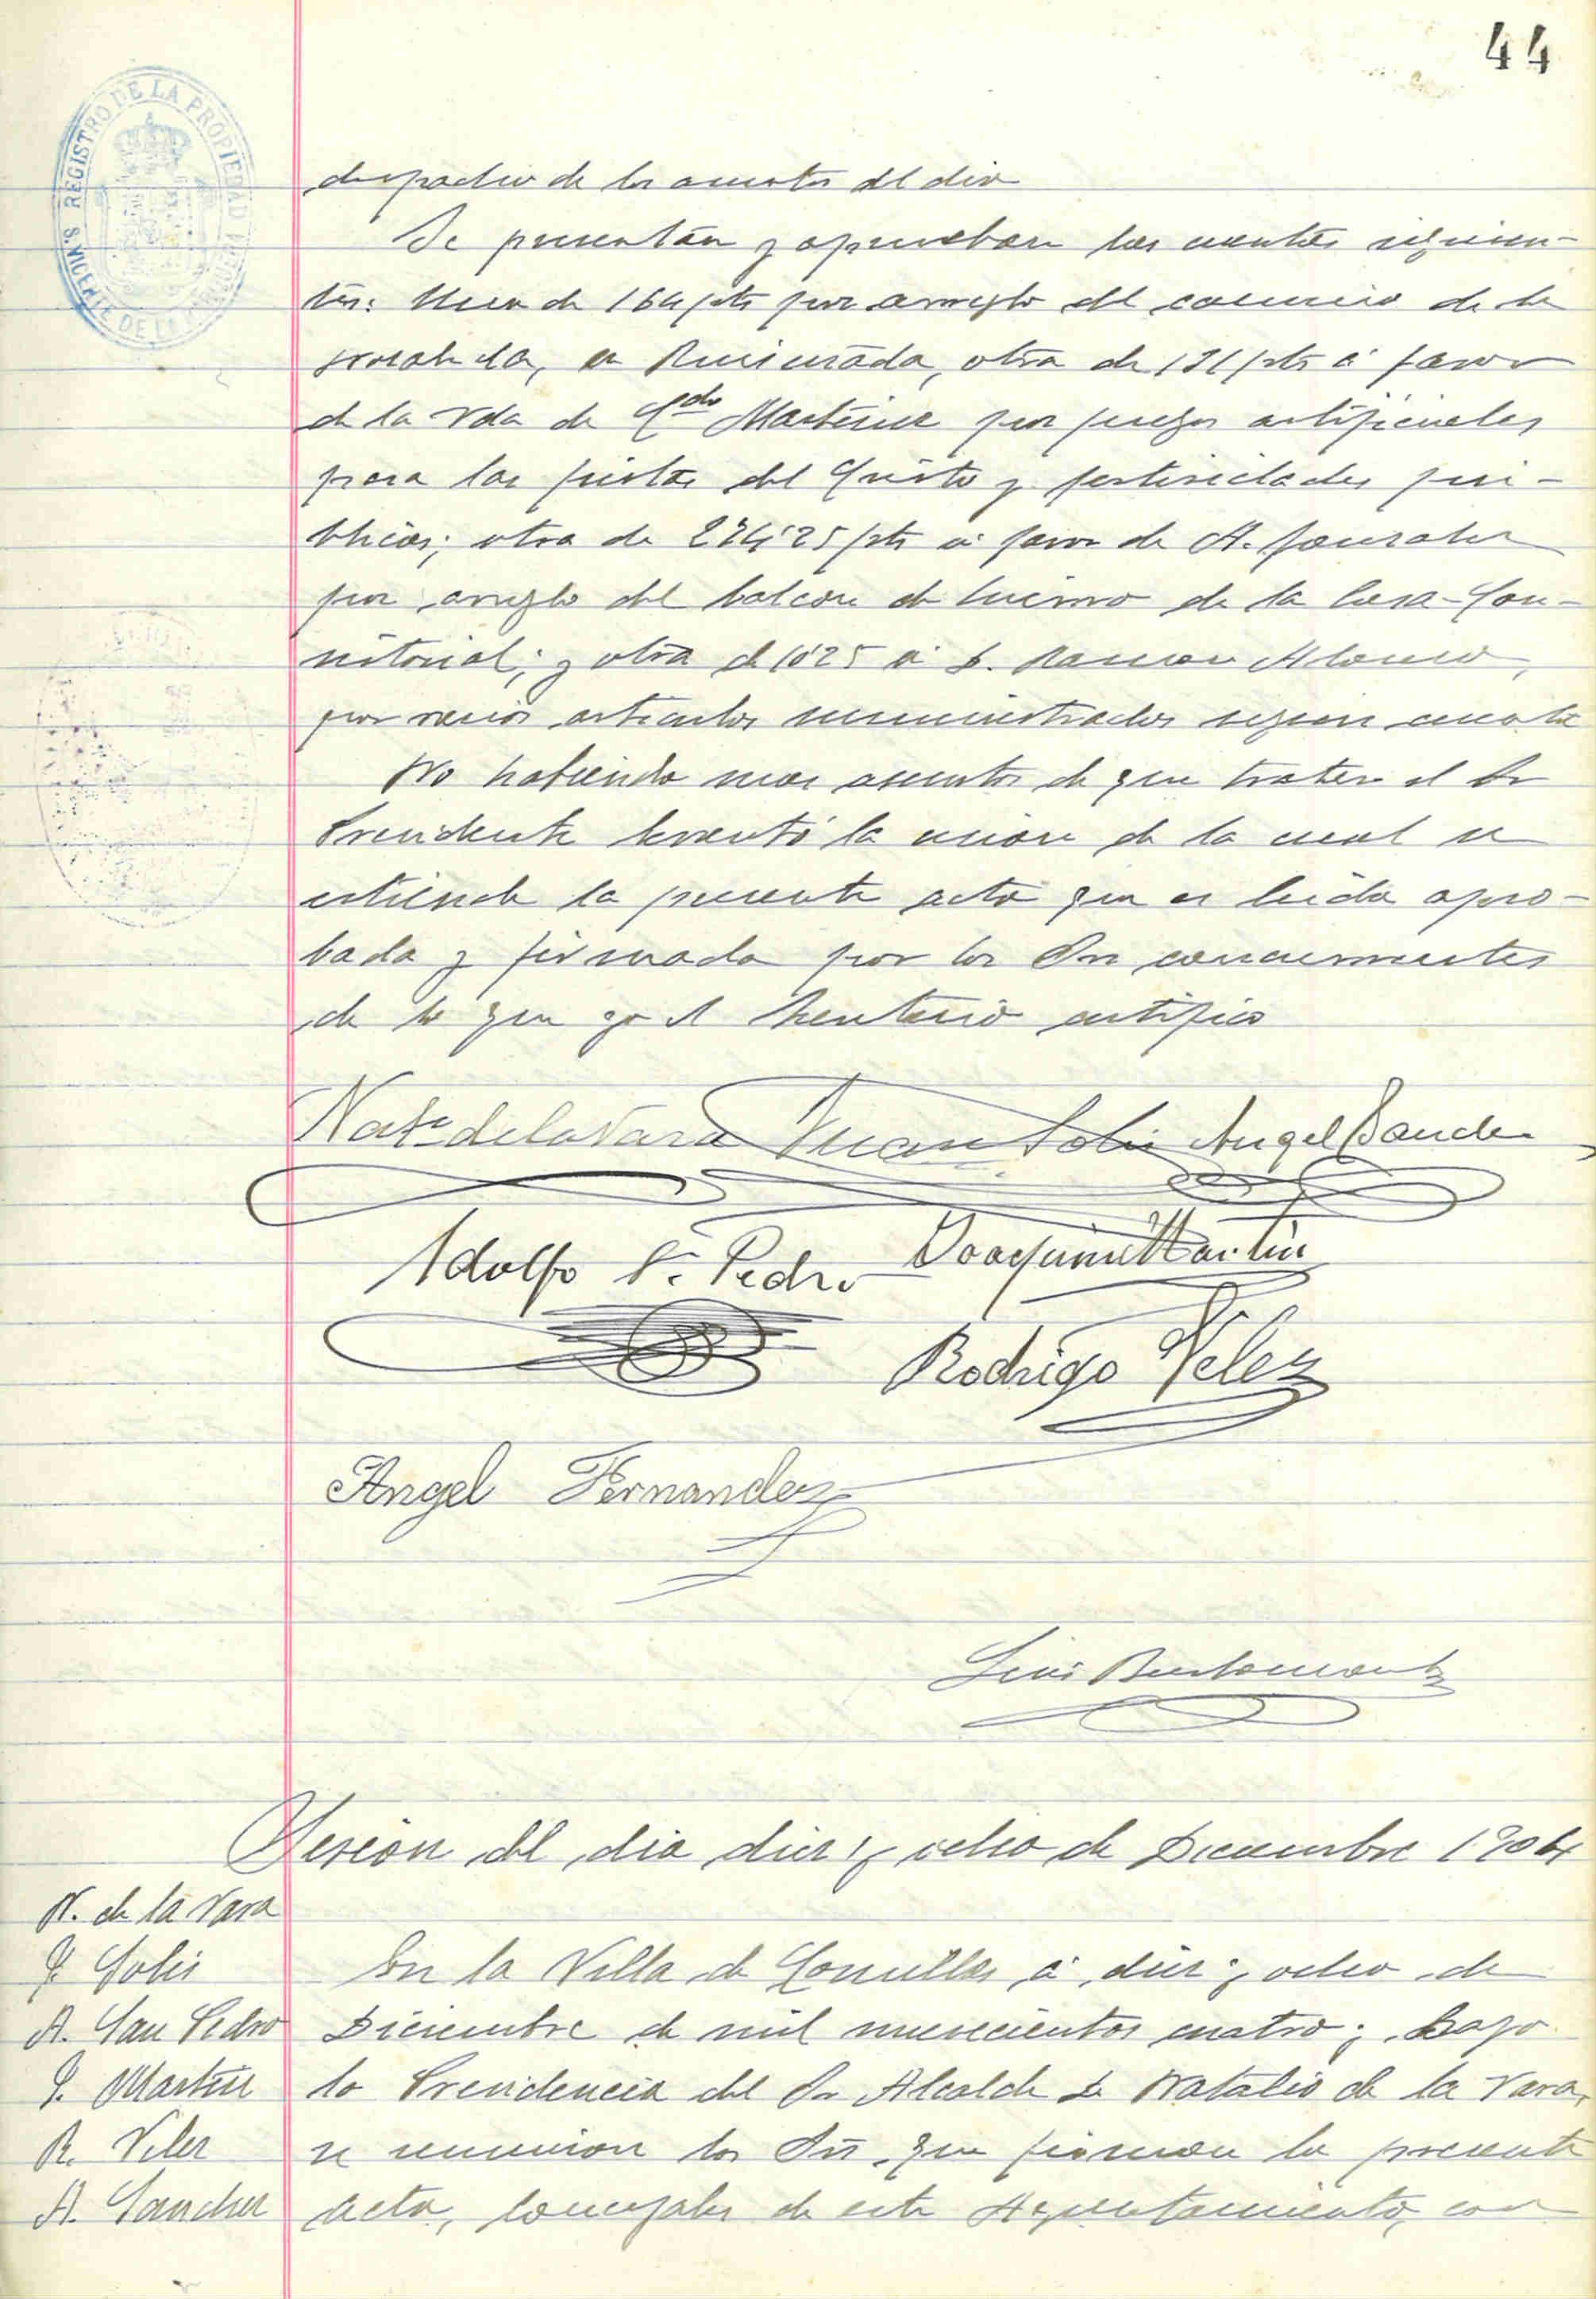 44
REGISTRO DE LA PROPIEDAD
S. VICENTE DE LA
despacho de los asuntos del dia
Se presentan y aprueban las cuentas siguien-
tes: Una de 164 pts por arreglo del camino de la
en Ruiseñada, otra de 131 pts á favor
de la Vda de Martinez por fuegos artificiales
para las fiestas del Cristo y festividades pú-
blicas; otra de 274'25 pts á favor de A. Gonzalez
por arreglo del balcon de hierro de la Casa-Con-
sistorial; y otra de 10'25 á D. Ramon Alonso,
por varios articulos suministrados segun cuenta
No habiendo mas asuntos de que tratar el Sr
Presidente levantó la sesion de la cual se
estiende la presente acta que es leida apro-
bada y firmada por los Sres concurrentes
de lo que yo el Secretario certifico
Nat.º de la Vara Juan Solis Angel Sanchez
Adolfo S. Pedro Joaquin Martin
Rodrigo Velez
Angel Fernandez
Luis Bustamante
Sesion del dia diez y ocho de Diciembre 1904
N. de la Vara
J. Solis
A. San Pedro
J. Martin
R. Velez
A. Sanchez
En la Villa de Comillas á diez y ocho de
Diciembre de mil novecientos cuatro; bajo
la Presidencia del Sr Alcalde D. Natalio de la Vara,
se reunieron los Sres que firman la presente
acta, Concejales de este Ayuntamiento, con